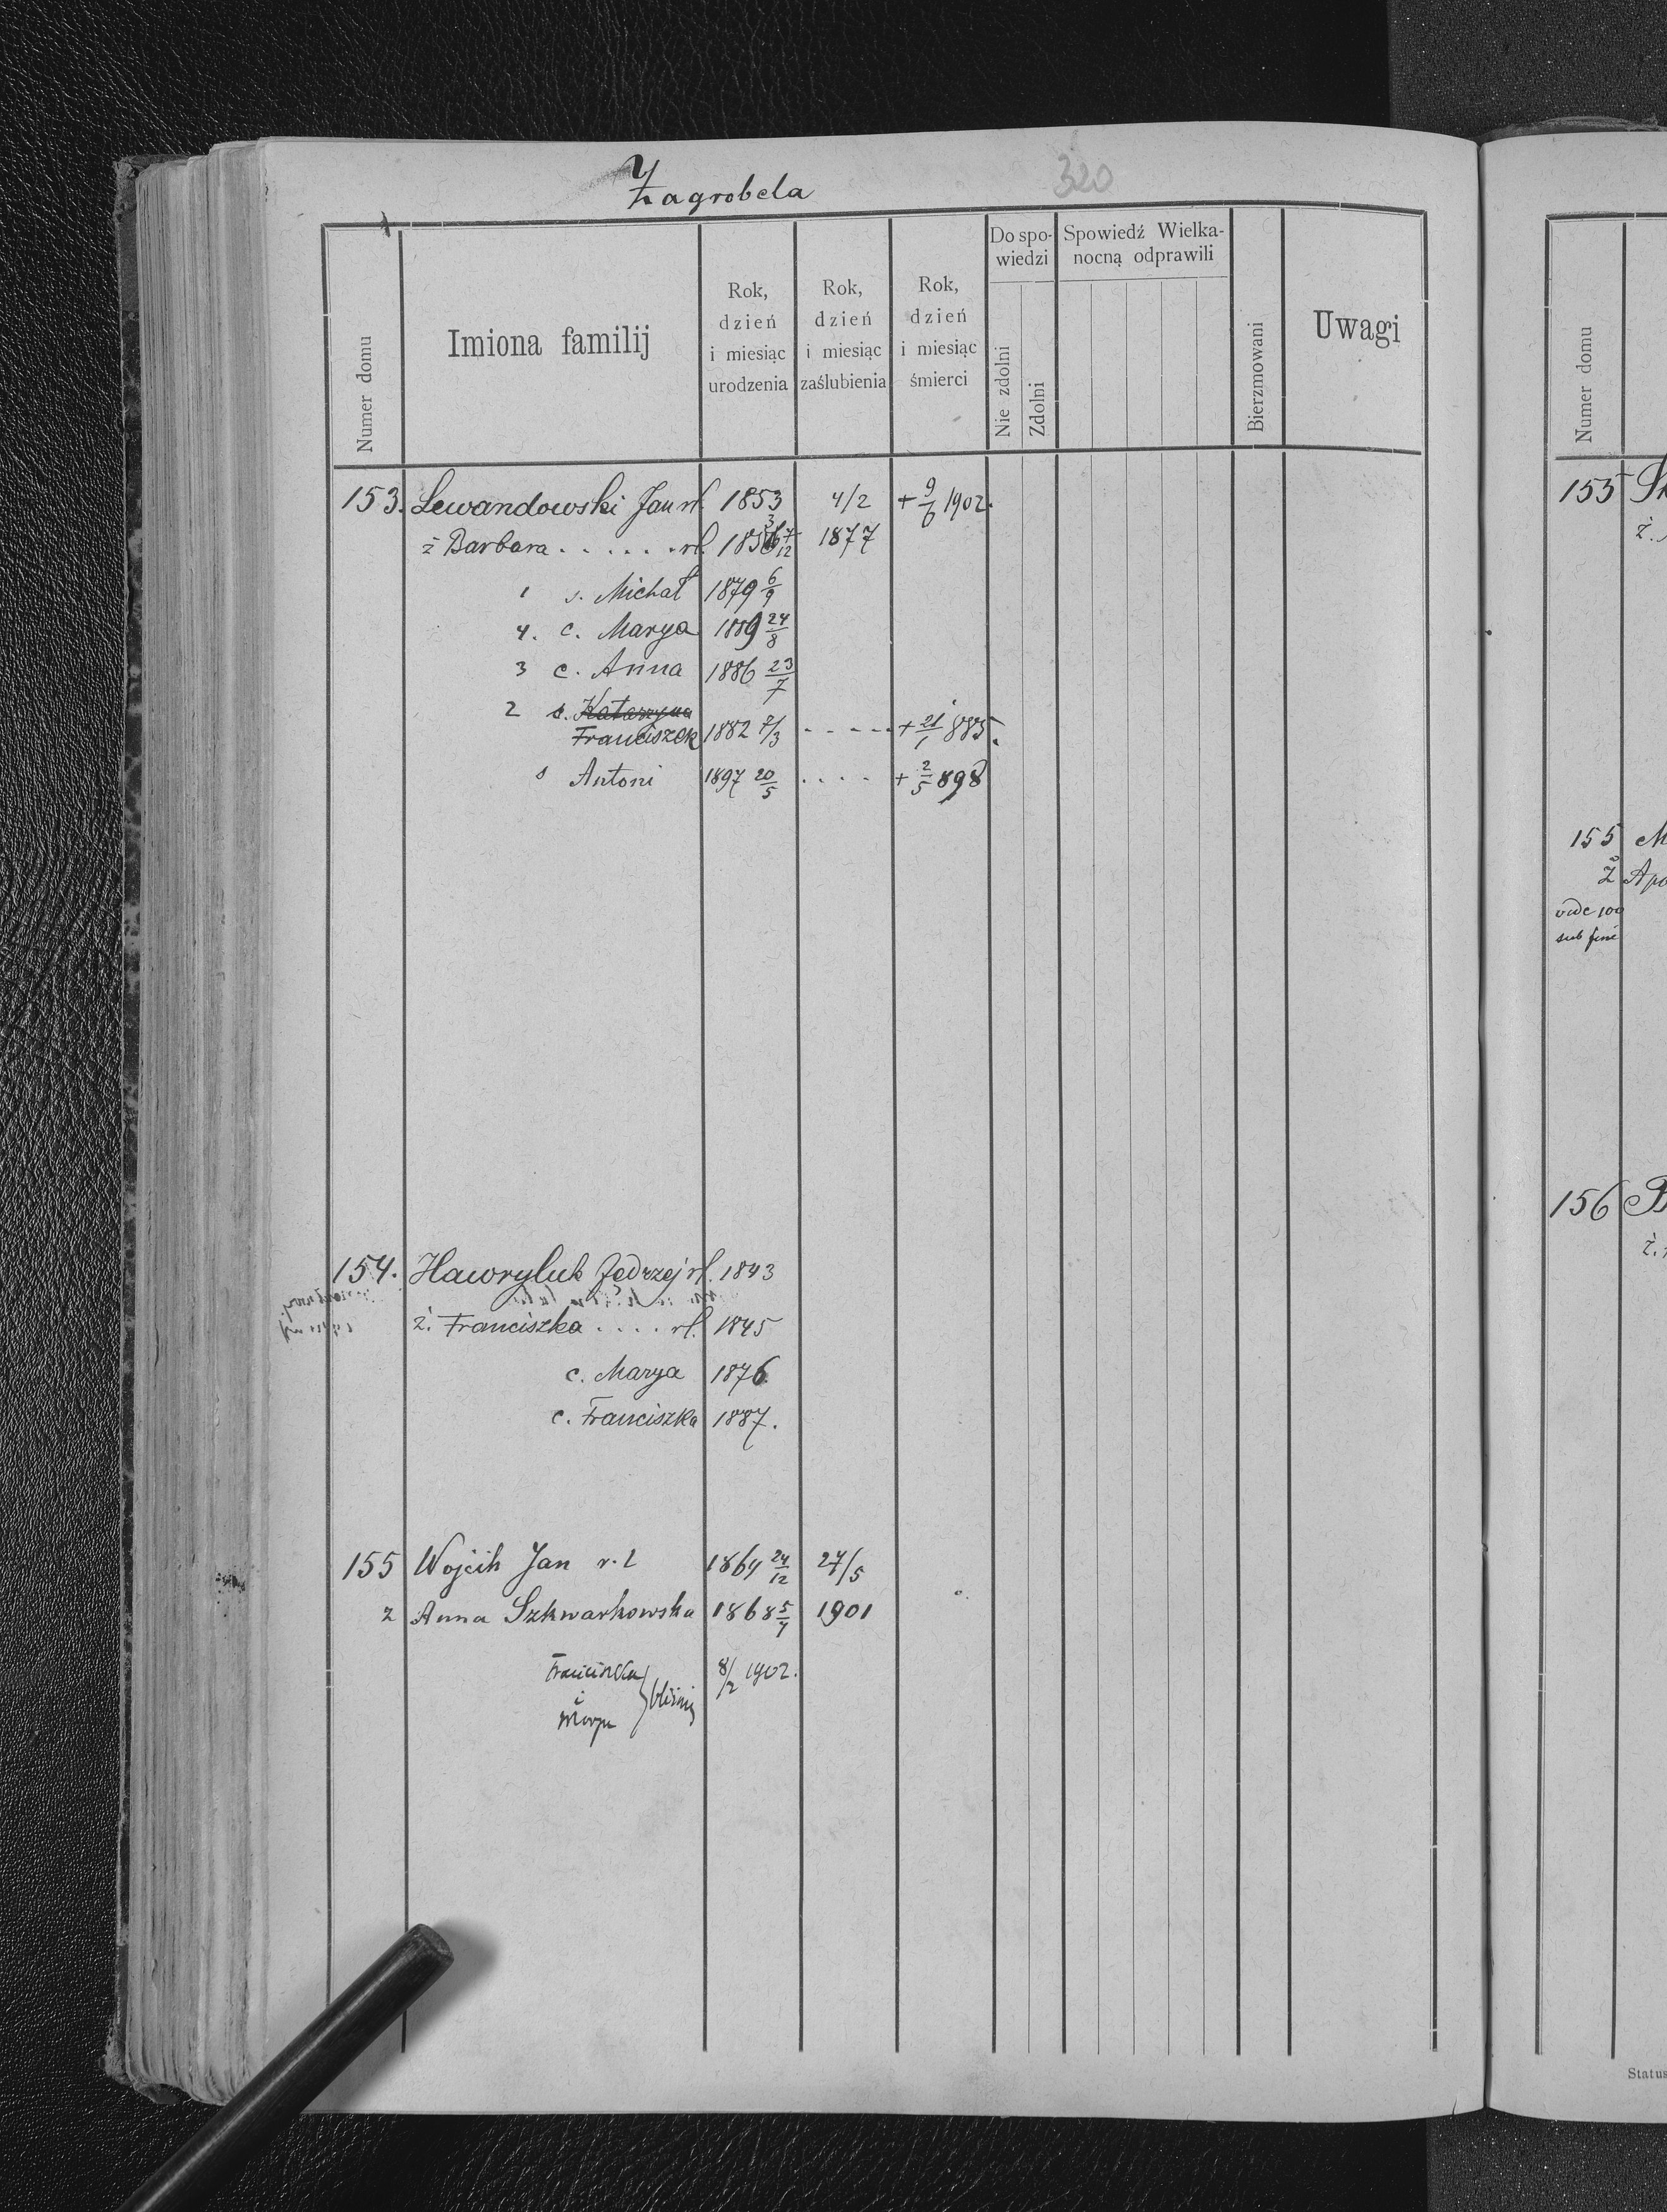 Zagrobela
320
Numer domu
Imiona familij
Rok, dzień i miesiąc urodzenia
Rok, dzień i miesiąc zaślubienia
Rok, dzień i miesiąc śmierci
Do spowiedzi
Nie zdolni
Zdolni
Spowiedź Wielkanocną odprawili
Bierzmowani
Uwagi
153. Lewandowski Jan rł. 1853 4/2 + 9/6 1902.
ż Barbara . . . . . . rł. 185 7/12 1877
1 s. Michał 1879 6/9
4. c. Marya 1889 24/8
3 c. Anna 1886 23/7
2 s. Katarzyna
Franciszek 1882 7/3 . - - - - + 21/1 885.
s Antoni 1897 20/5 . . . . + 2/5 898
154. Hawryluk Jędrzej rł. 1843
ż. Franciszka . . . . rł. 1845
c. Marya 1876
c. Franciszka 1887.
155 Wojcik Jan r.ł 1864 24/12 27/5
ż Anna Szkwarkowska 1868 5/4 1901
Franciszka 8/2 1902.
i bliźnię
Marya
Numer domu
153
ż.
155 M
Ż Apo
vide 100
sub fine
156 B
ż.
Status